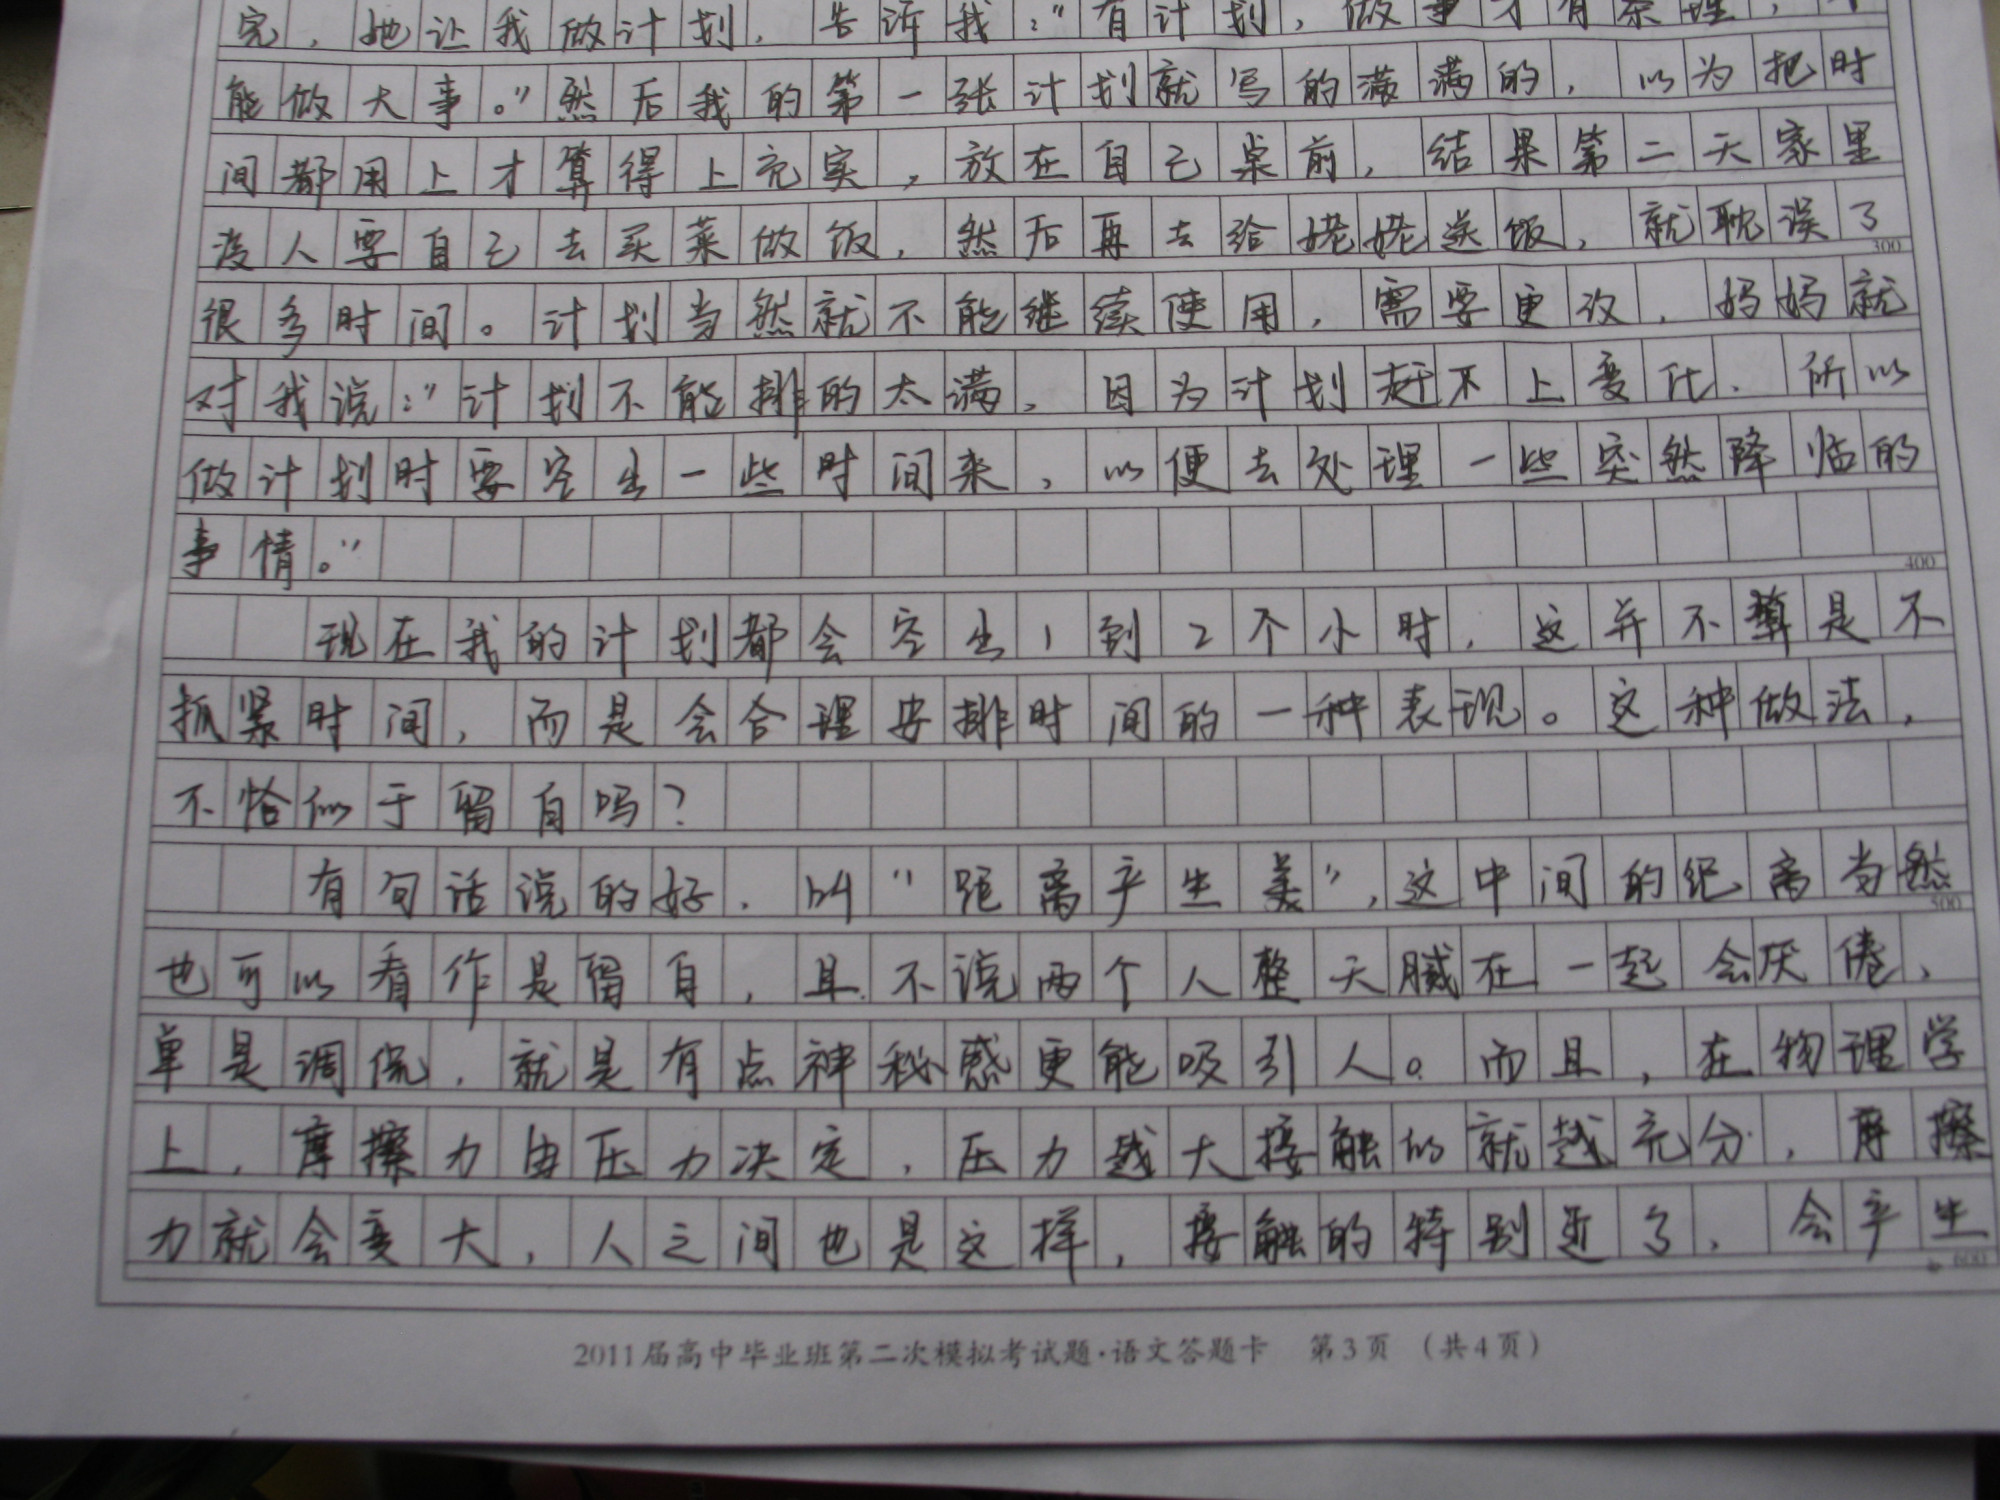 完，她让我做计划，告诉我：“有计划，做事才有条理，才
能做大事。”然后我的第一张计划就写的满满的，以为把时
间都用上才算得上充实，放在自己桌前，结果第二天家里
没人要自己去买菜做饭，然后再去给姥姥送饭，就耽误了
300
很多时间。计划当然就不能继续使用，需要更改，妈妈就
对我说：“计划不能排的太满，因为计划赶不上变化，所以
做计划时要空出一些时间来，以便去处理一些突然降临的
事情。”
400
现在我的计划都会空出1到2个小时，这并不算是不
抓紧时间，而是会合理安排时间的一种表现。这种做法，
不恰似于留白吗？
有句话说的好，叫“距离产生美”，这中间的距离当然
500
也可以看作是留白，且不说两个人整天腻在一起会厌倦，
单是调侃，就是有点神秘感更能吸引人。而且，在物理学
上，摩擦力由压力决定，压力越大接触的就越充分，摩擦
力就会变大，人之间也是这样，接触的特别近了，会产生
600
2011届高中毕业班第二次模拟考试题·语文答题卡 第3页 （共4页）